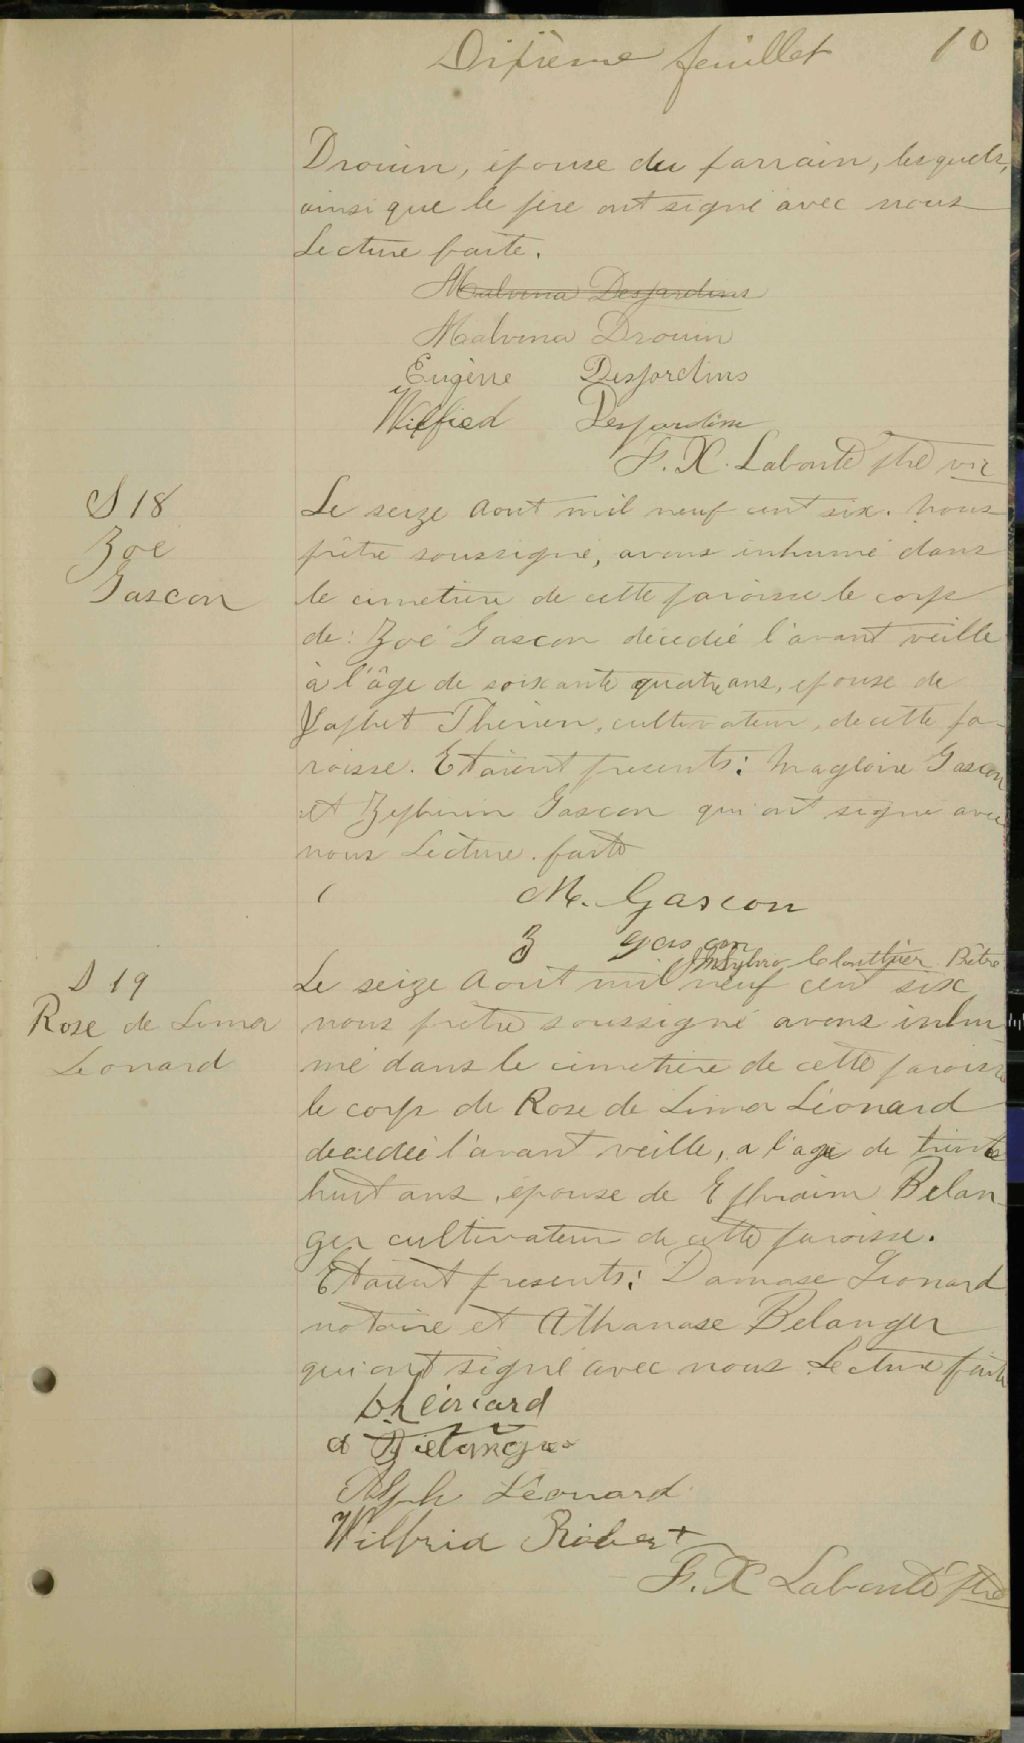 Dixième feuillet 10
Drouin, épouse du parrain, lesquels,
ainsi que le père ont signé avec nous
Lecture faite.
Malvina Desjardins
Malvina Drouin
Eugène Desjardins
Wilfied Desjardins
F. X. Labonté ptre vic
S 18
Zoé
Gascon
Le seize Aout mil neuf cent six. Nous
prêtre soussigné, avons inhumé dans
le cimetière de cette paroisse le corps
de: Zoé Gascon décédée l'avant veille
à l'âge de soixante quatre ans, épouse de
Japhet Therien, cultivateur, de cette pa-
roisse. Etaient presents: Magloire Gascon
et Zephirin Gascon qui ont signé avec
nous Lecture faite
M. Gascon
Z gascon
Sylvio Cloutier Ptre
S 19
Rose de Lima
Leonard
Le seize Aout mil neuf cent six
nous prêtre soussigné avons inhu
mé dans le cimetière de cette paroisse
le corps de Rose de Lima Léonard
décédée l'avant veille, a l'age de trente
huit ans, épouse de Ephraim Belan
ger cultivateur de cette paroisse.
Etaient presents: Damase Leonard
notaire et Athanase Belanger
qui ont signé avec nous. Lecture faite
Léonard
A Bélanger
Alph Léonard
Wilfrid Robert
F. X Labonté ptre